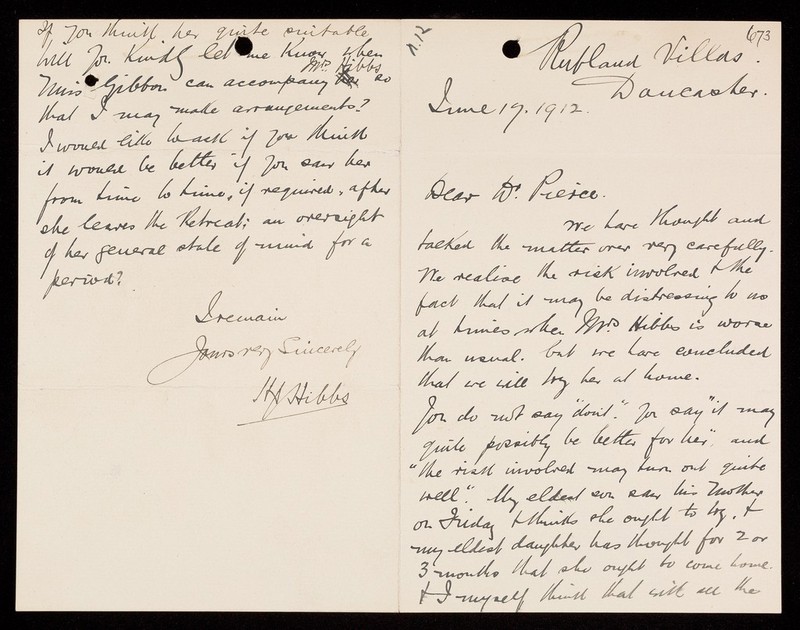 673
Rutland Villas.
Doncaster.
June 17. 1912.
Dear Dr. Pierce.
We have thought and
talked the matter over very carefully.
We realise the risk involved & the
fact that it may be distressing to us
at times when Mrs Hibbs is worse
than usual. but we have concluded
that we will try her at home.
You do not say "don't". You say "it may
quite possibly be better for her", and
"the risk involved may turn out quite
well". My eldest son saw his Mother
on Friday & thinks she ought to try, &
my eldest daughter has thought for 2 or
3 months that she ought to come home.
& I myself think that with all the
If you think her quite suitable
will you kindly let me know when
Miss Gibbon can accompany her Mrs. Hibbs so
that I may make arrangements?
I would like to ask if you think
it would be better if you saw her
from time to time, if required, after
she leaves the Retreat; an oversight
of her general state of mind for a
period?
I remain
Yours very Sincerely
HJ Hibbs